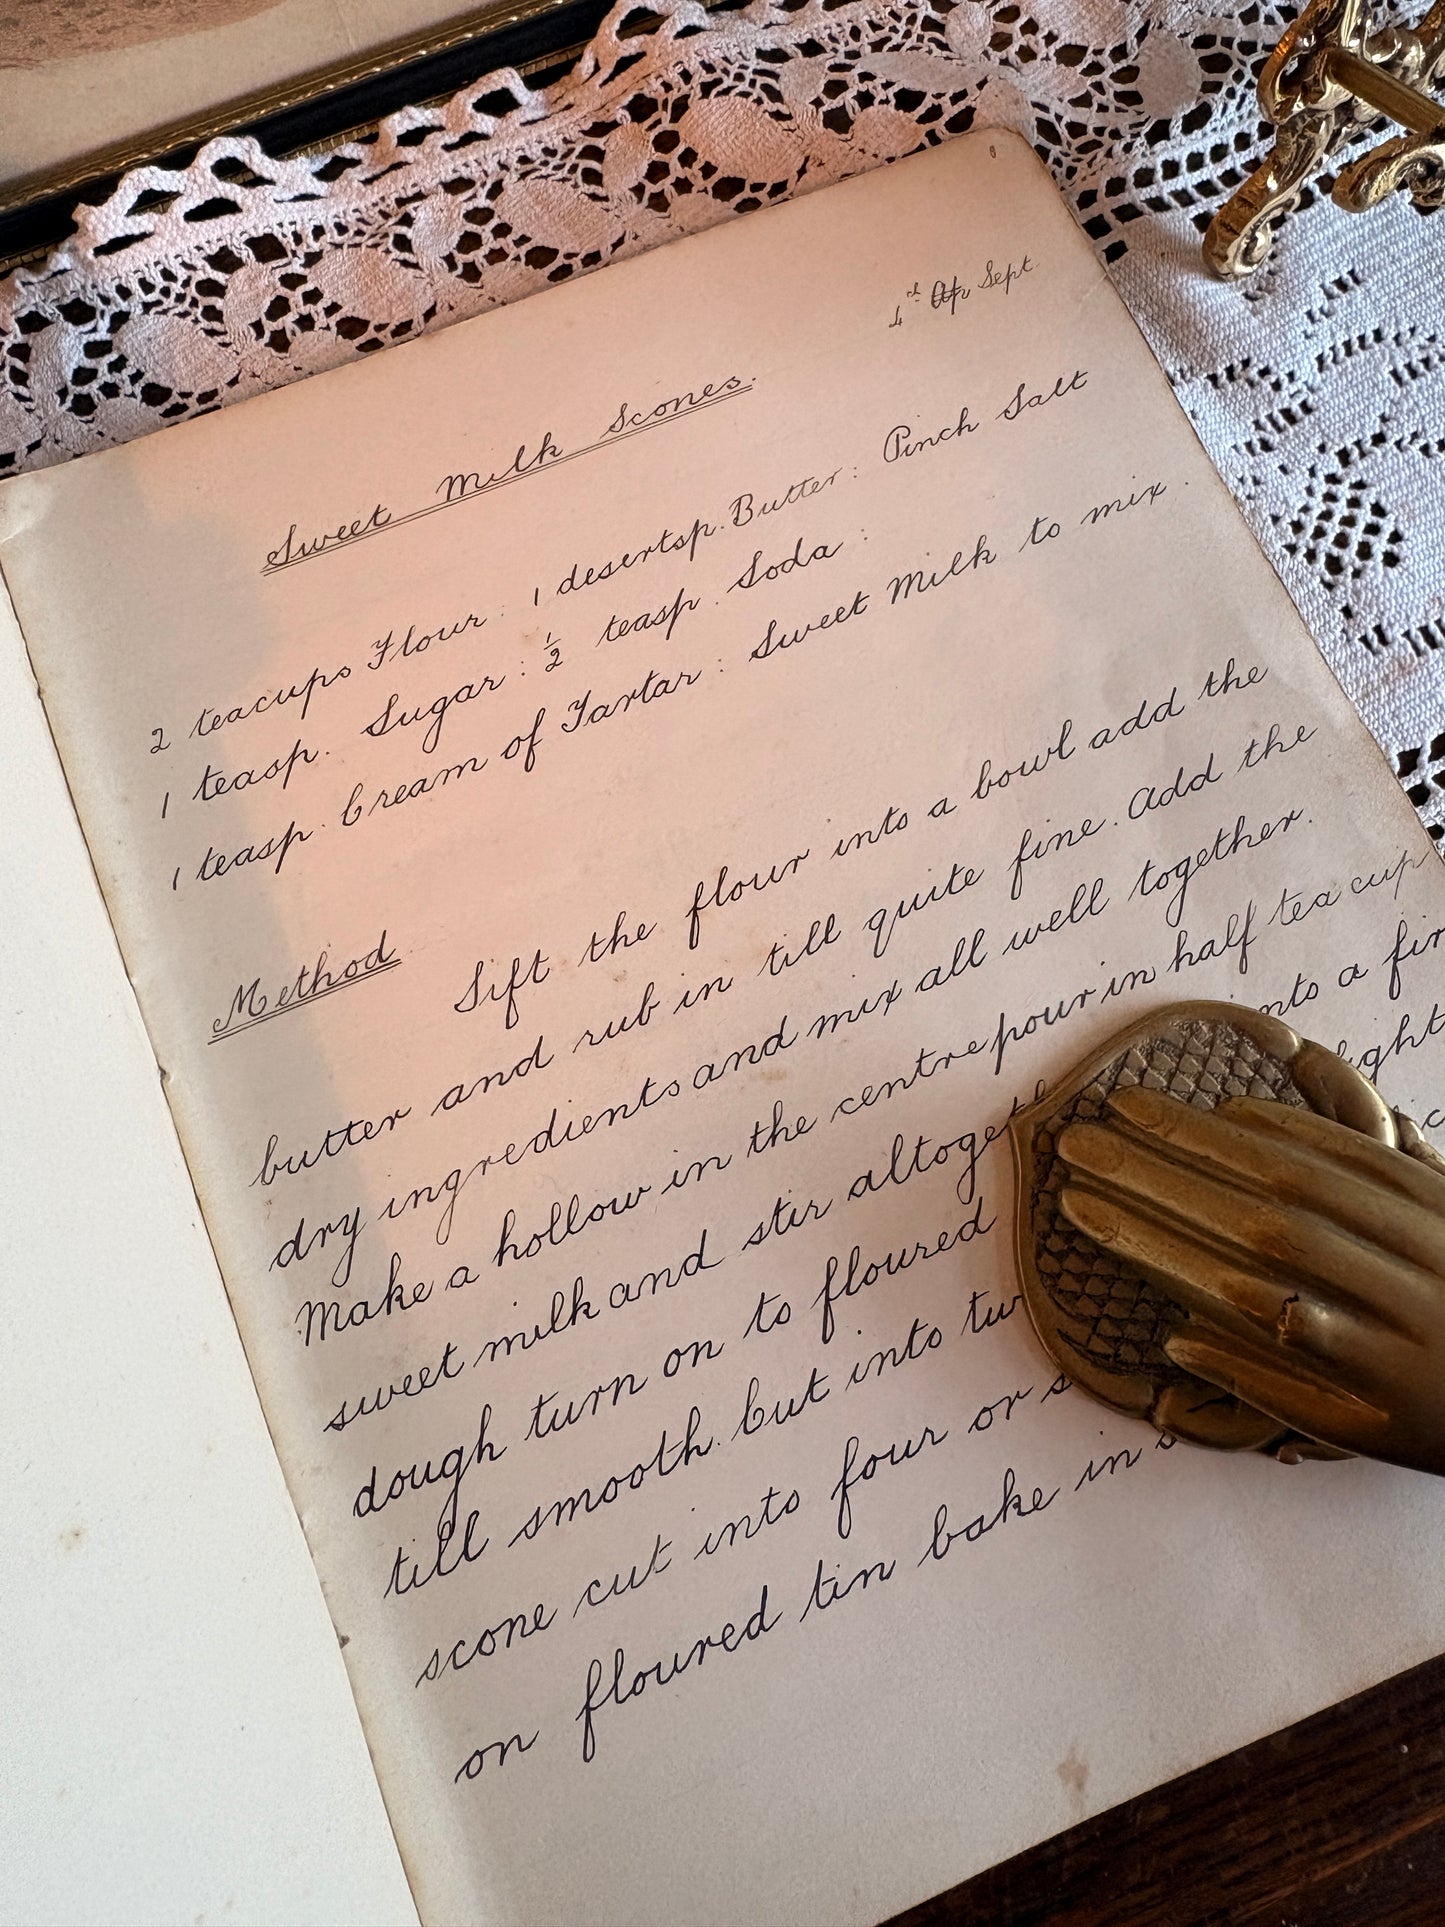 4th Ap Sept.
Sweet Milk Scones.
2 teacups Flour : 1 desertsp. Butter : Pinch Salt
1 teasp. Sugar : ½ teasp. Soda :
1 teasp. Cream of Tartar : Sweet Milk to mix.
Method
Sift the flour into a bowl add the
butter and rub in till quite fine. Add the
dry ingredients and mix all well together.
Make a hollow in the centre pour in half tea cup
sweet milk and stir a
dough turn on to floured
till smooth. Cut into
scone cut into four or
on floured tin bake in